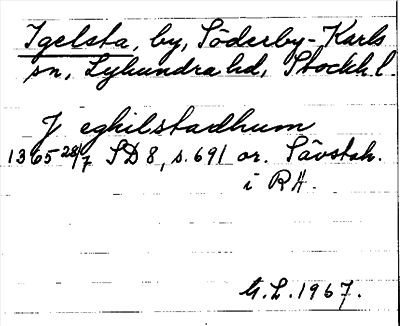 Igelsta, by, Söderby-Karls
sn, Lyhundra hd, Stockh.l.
J eghilstadhum
1365 28/7 SD 8, s. 691 or. Sävstah.
i RA.
G.L. 1967.